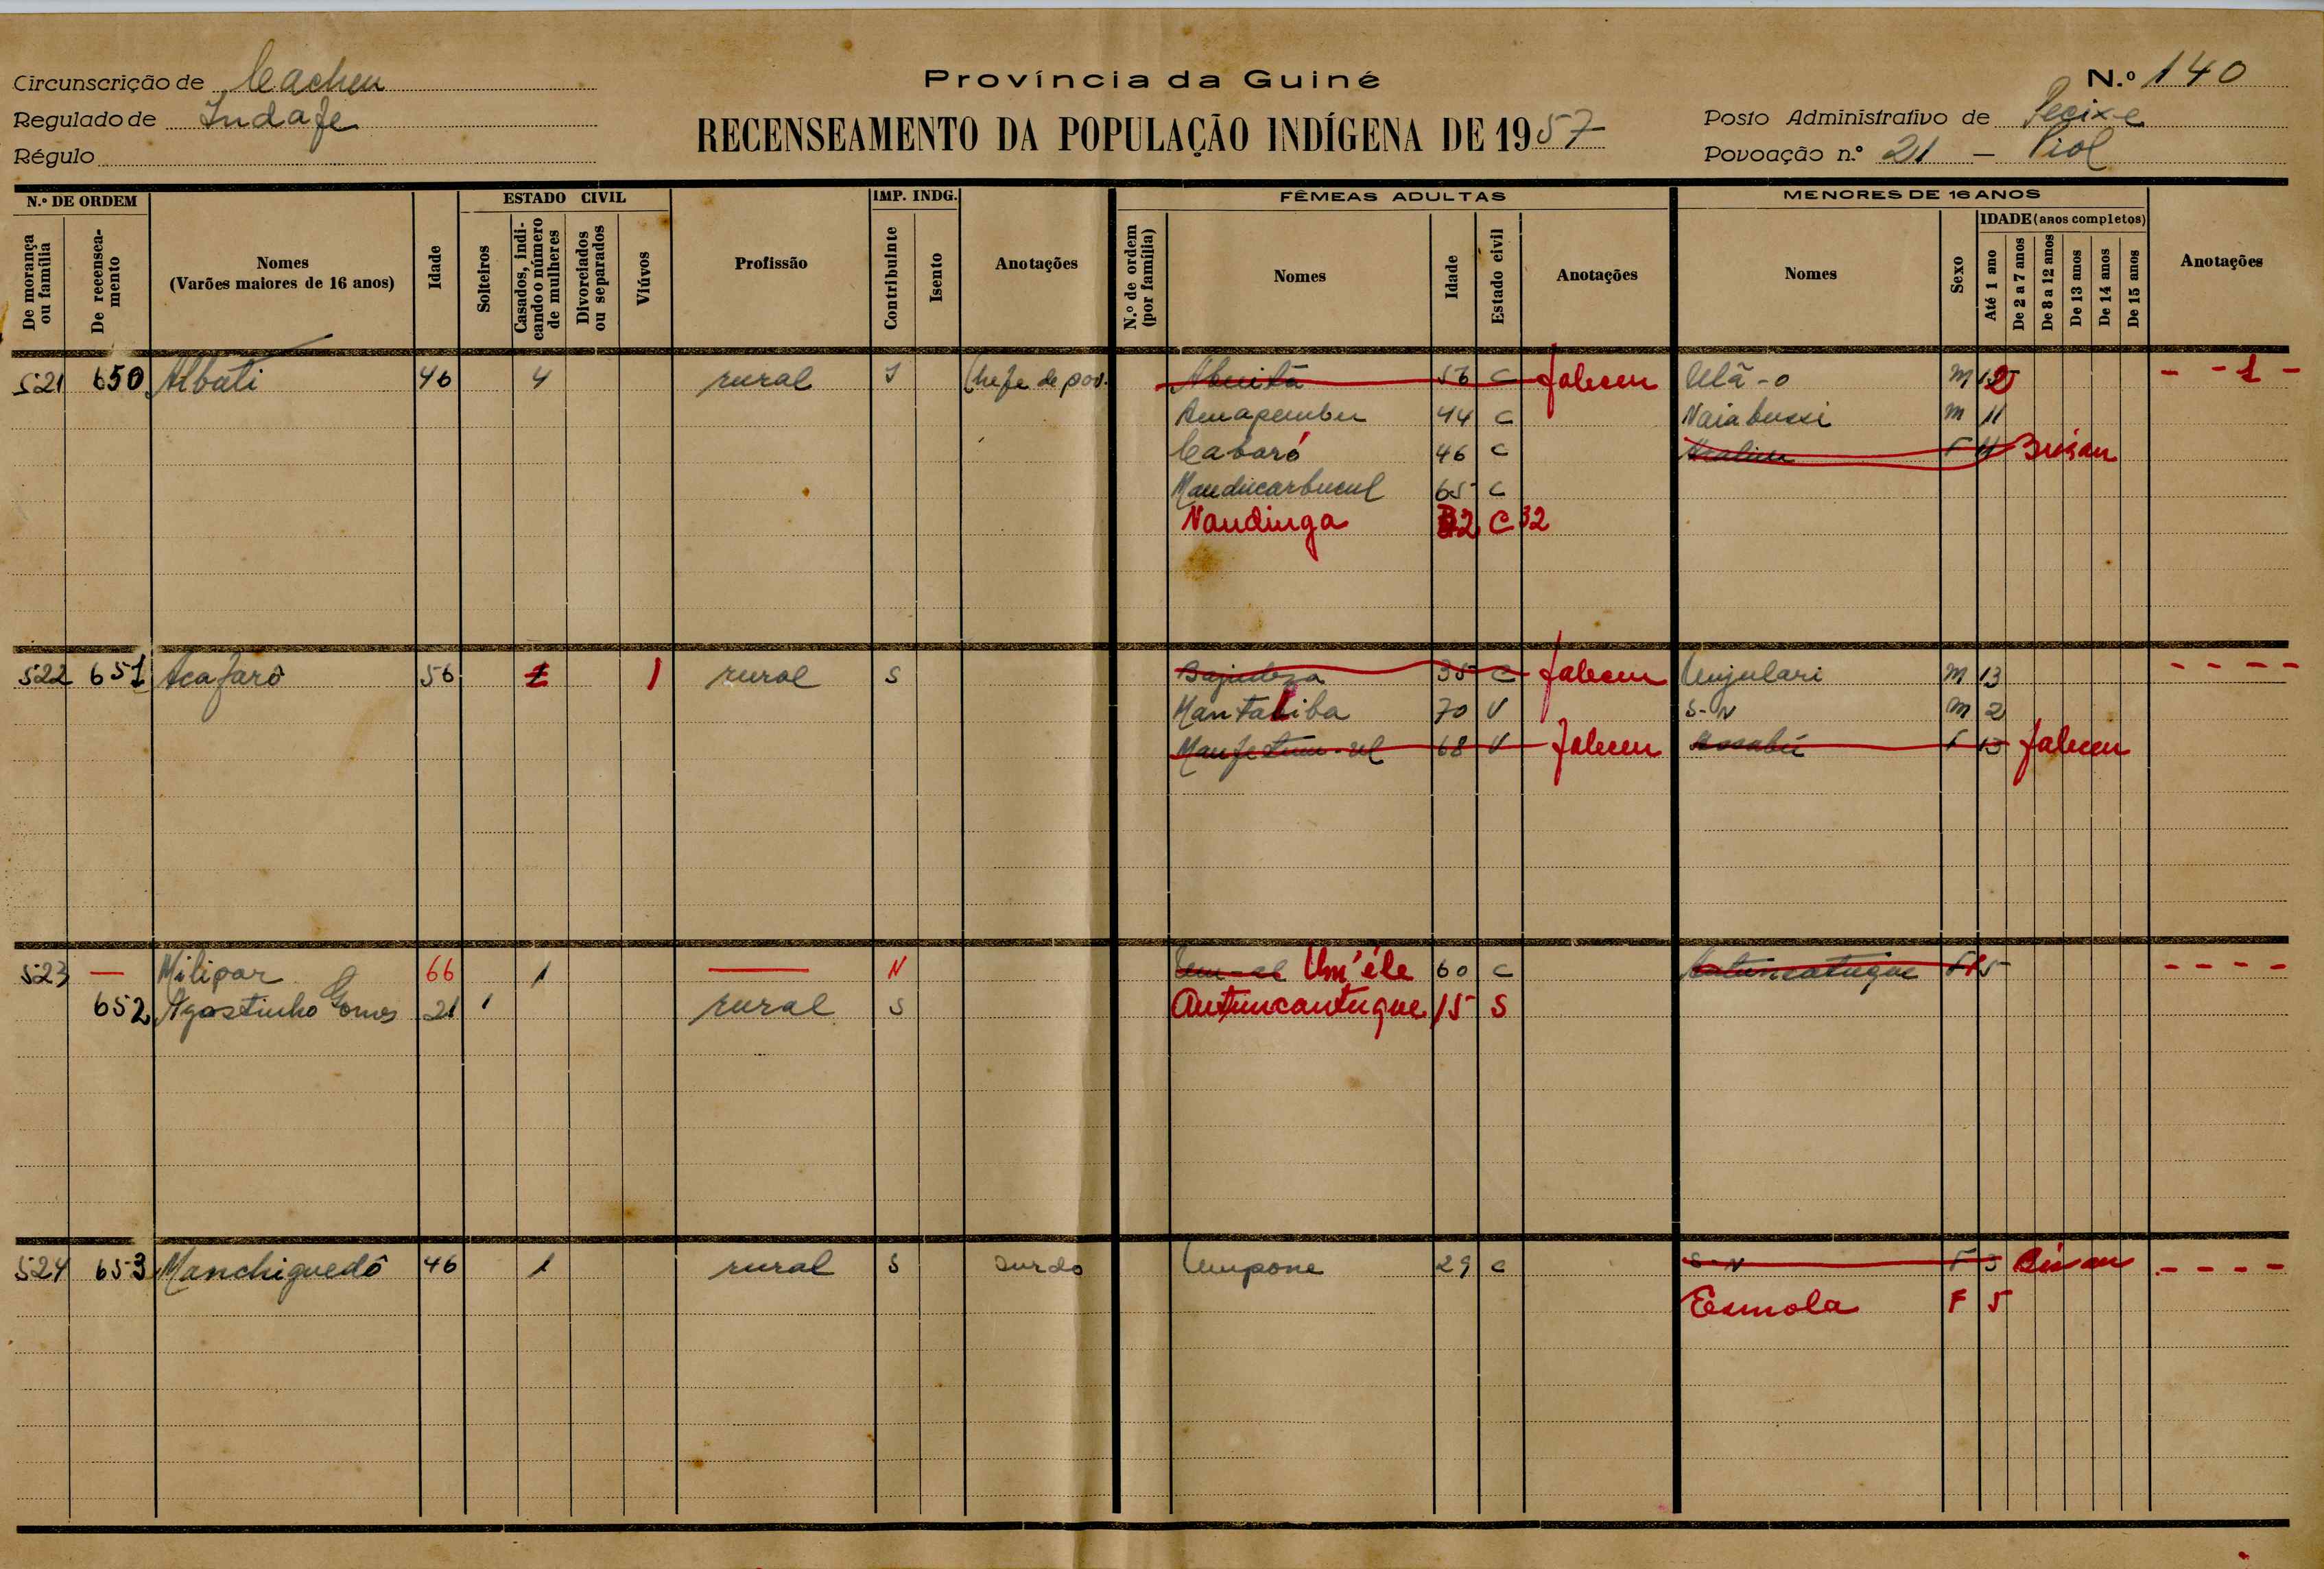 Circunscrição de Cacheu
Regulado de Indafe
Régulo
Província da Guiné
RECENSEAMENTO DA POPULAÇÃO INDÍGENA DE 1957
N.º 140
Posto Administrativo de Pecixe
Povoação n.º 21 — Piol
N.º DE ORDEM
De morança ou família
De recenseamento
Nomes
(Varões maiores de 16 anos)
Idade
ESTADO CIVIL
Solteiros
Casados, indicando o número de mulheres
Divorciados ou separados
Viúvos
Profissão
IMP. INDG.
Contribuinte
Isento
Anotações
FÊMEAS ADULTAS
N.º de ordem (por família)
Nomes
Idade
Estado civil
Anotações
MENORES DE 16 ANOS
Nomes
Sexo
IDADE (anos completos)
Até 1 ano
De 2 a 7 anos
De 8 a 12 anos
De 13 anos
De 14 anos
De 15 anos
Anotações
521 650 Albati 46 4 rural Chefe de pov. Abuitã 56 C faleceu Ulã-o M - - 1 -
Amapembu 44 C Naiabussi M 11
Cabaró 46 C F
Manducarbucul 65 C
Nandinga 32 C 32
522 651 Acafarô 56 1 rural S 35 C faleceu Unjulari M 13 - - - -
Mantaliba 70 V S-N M 2
68 V faleceu Assabú F 13 faleceu
523 — Milipar 66 1 — N Um'éle 60 C F 15 - - - -
652 Agostinho Gomes 21 1 rural S Autuncantuque 15 S
524 653 Manchiguedô 46 1 rural S surdo Umpone 29 C S-N F 3 - - - -
Esmola F 5